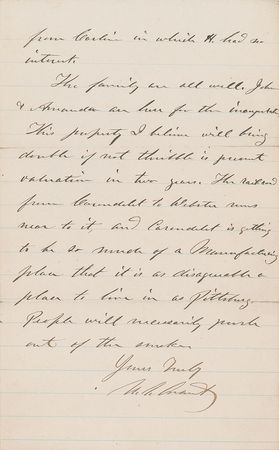 from Carlin in which H. had no
interest.
The family are all well. John
& Amanda are here for the inauguration
This property I believe will bring
double if not thribble its present
valuation in two years. The railroad
from Carondelet to Webster runs
near to it, and Carondelet is getting
to be so much of a Manufacturing
place that it is as disagreeable a
place to live in as Pittsburg.
People will necessarily push
out of the smoke.
Yours Truly
U. S. Grant